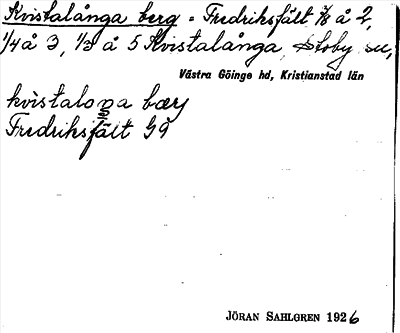 Kvistalånga berg = Fredriksfält 1/8 å 2,
1/4 å 3, 1/3 å 5 Kvistalånga, Stoby sn,
Västra Göinge hd, Kristianstad län
kvistaloŋa bærj
Fredriksfält G9
JÖRAN SAHLGREN 1926